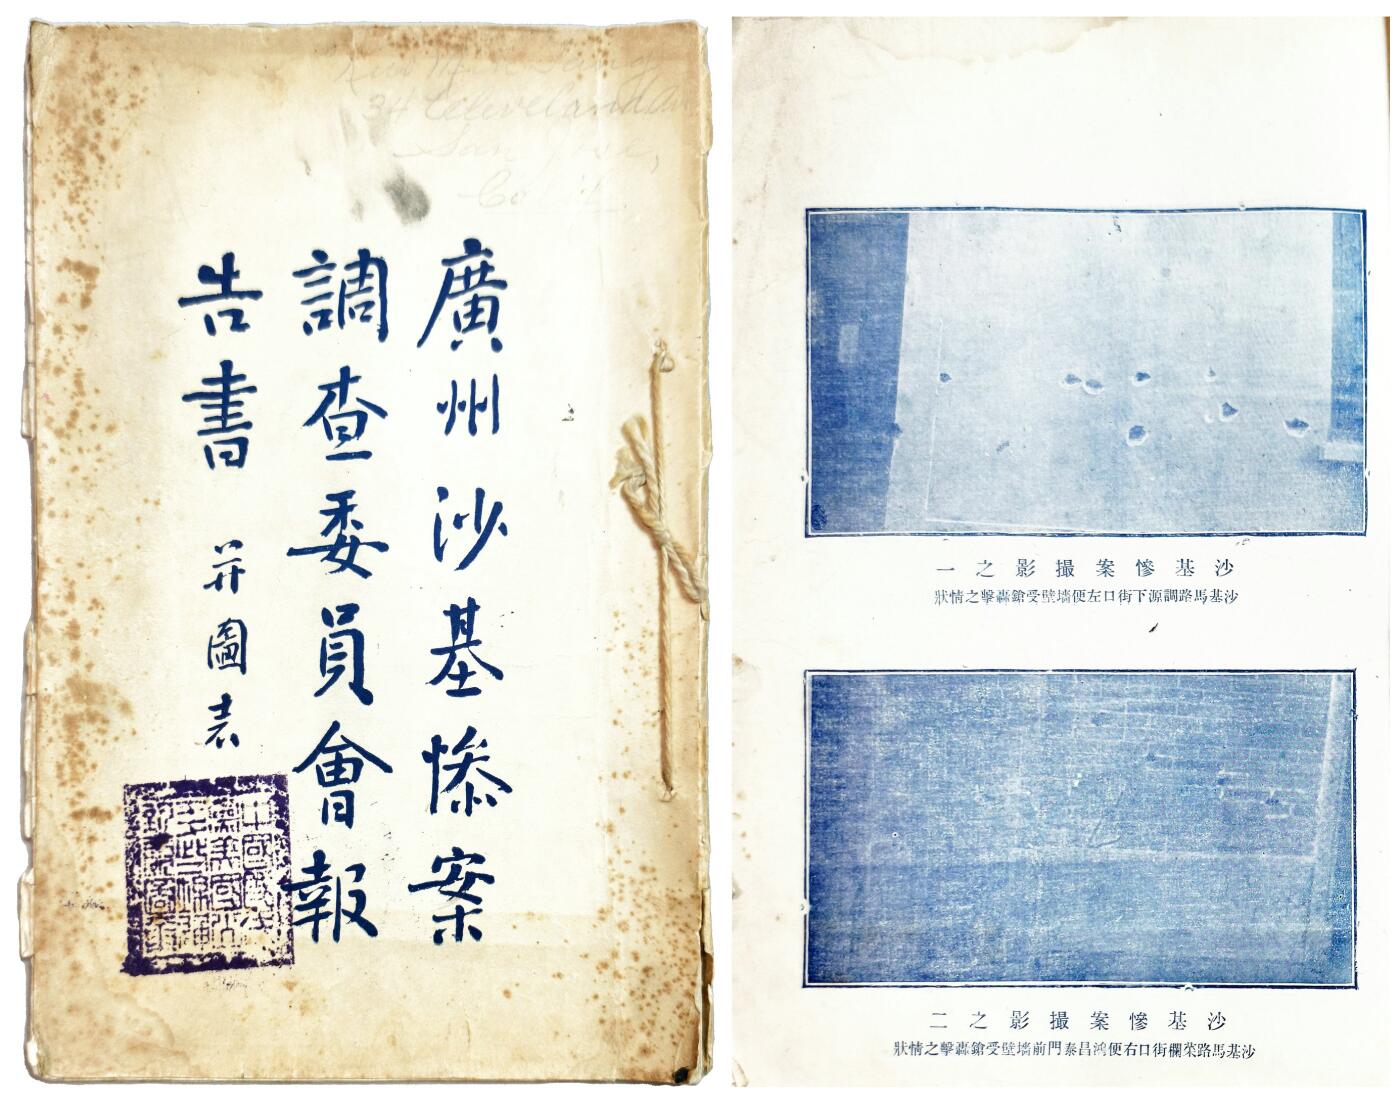 34 Cleveland Av
San Jose,
Calif.
廣州沙基慘案
調查委員會報
告書 并圖表
沙基慘案撮影之一
沙基馬路調源下街口左便墻壁受鎗轟擊之情狀
沙基慘案撮影之二
沙基馬路菜欄街口右便鴻昌泰門前墻壁受鎗轟擊之情狀